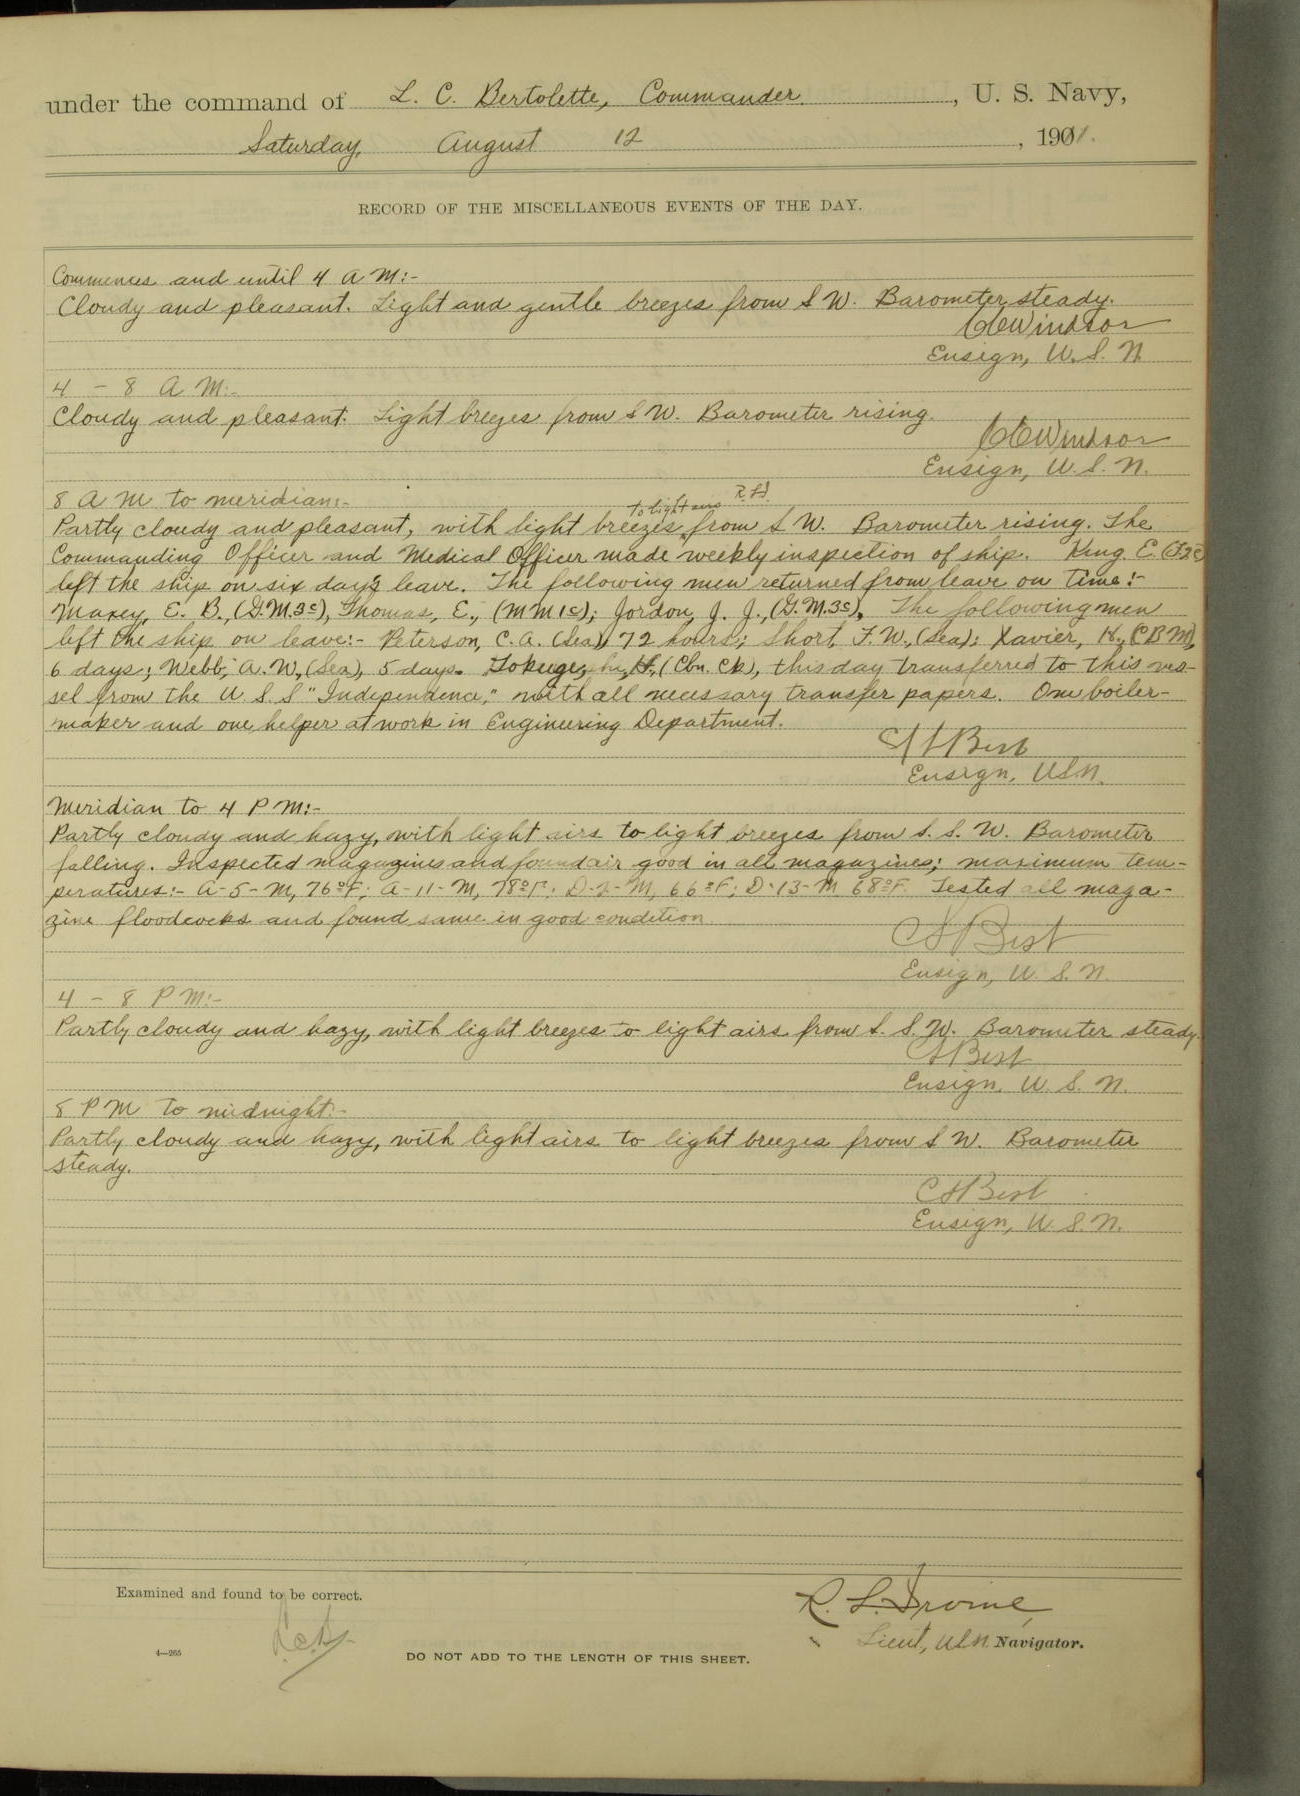 under the command of L. C. Bertolette, Commander, U. S. Navy,
Saturday, August 12, 1911.
RECORD OF THE MISCELLANEOUS EVENTS OF THE DAY.
Commences and until 4 A M:-
Cloudy and pleasant. Light and gentle breezes from S W. Barometer steady.
Windsor
Ensign, U. S. N
4 - 8 A M:-
Cloudy and pleasant. Light breezes from S W. Barometer rising.
Windsor
Ensign, U. S. N.
8 A M to meridian:-
to light airs
Partly cloudy and pleasant, with light breezes from S W. Barometer rising. The
Commanding Officer and Medical Officer made weekly inspection of ship. King E. (F.2c)
left the ship on six days leave. The following men returned from leave on time:-
Maxey, E. B., (G.M.3c), Thomas, E., (MM1c); Jordon, J. J., (G.M.3c). The following men
left the ship on leave:- Peterson, C. A. (Sea), 72 hours; Short, F. W., (Sea); Xavier, K., (CBM),
6 days; Webb, A. W., (Sea), 5 days. (Cbn. Ck), this day transferred to this ves-
sel from the U. S. S "Independence," with all necessary transfer papers. One boiler-
maker and one helper at work in Engineering Department.
Best
Ensign, USN.
Meridian to 4 P M:-
Partly cloudy and hazy, with light airs to light breezes from S. S. W. Barometer
falling. Inspected magazines and found air good in all magazines; maximum tem-
peratures:- A-5-M, 76°F; A-11-M, 78°F; M, 66°F; D-13-M 68°F. Tested all maga-
zine floodcocks and found same in good condition.
Best
Ensign, U. S. N.
4 - 8 P M:-
Partly cloudy and hazy, with light breezes to light airs from S. S. W. Barometer steady.
Best
Ensign, U. S. N.
8 P M to midnight:-
Partly cloudy and hazy, with light airs to light breezes from S W. Barometer
steady.
Best
Ensign, U. S. N.
Examined and found to be correct.
R. L. Irvine,
Lieut, USN. Navigator.
4—265
DO NOT ADD TO THE LENGTH OF THIS SHEET.